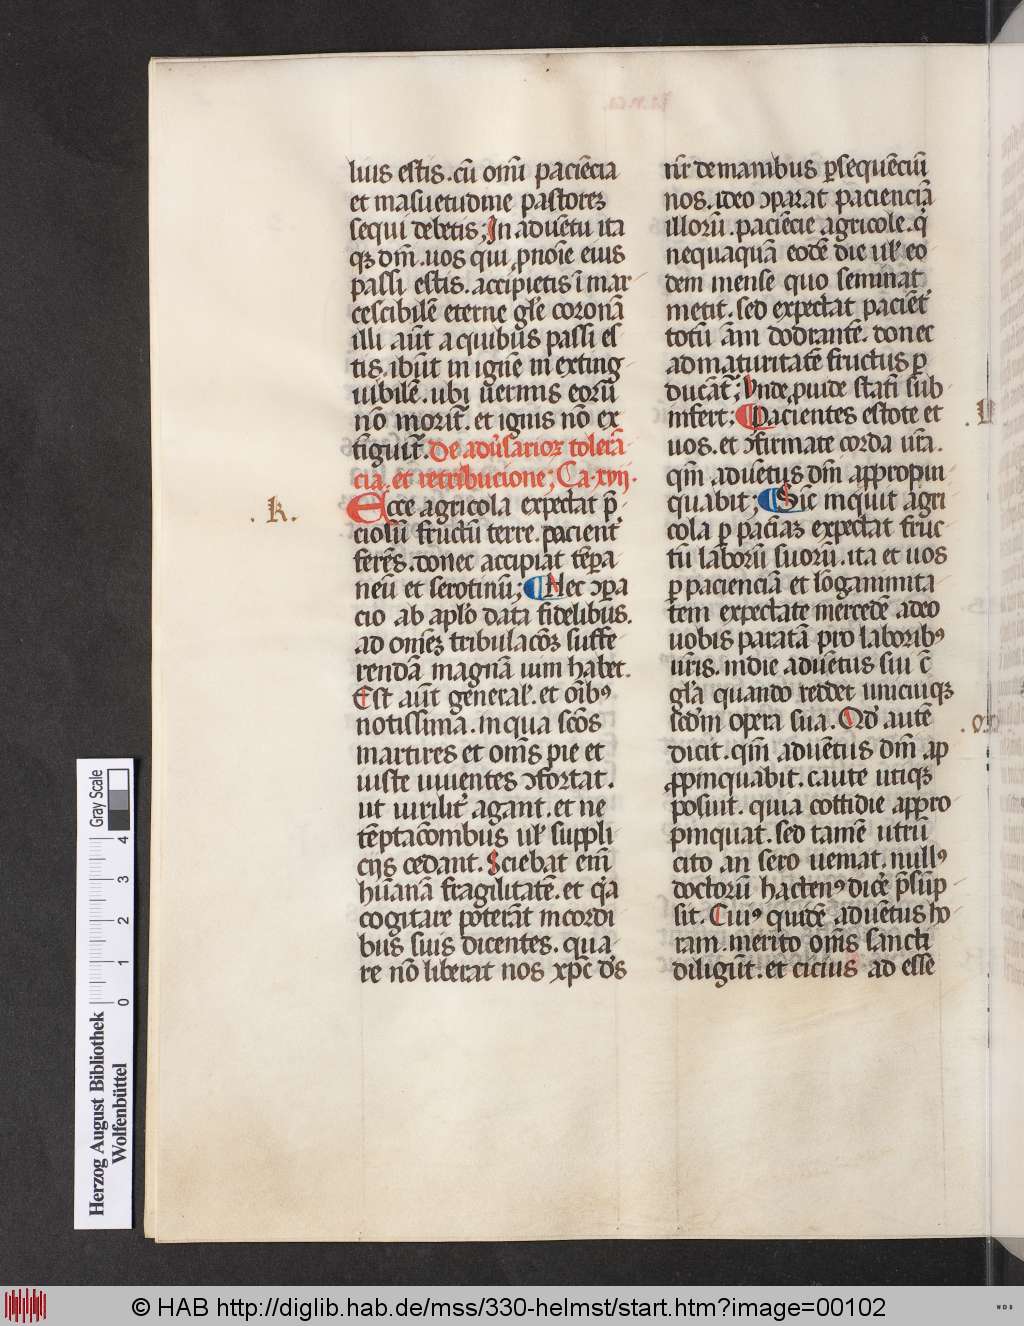 luis estis. cū om̄i paciēcia
et masuetudine pastores
sequi debetis; In aduētu ita
qꝫ dn̄i. uos qui ꝓ noīe eius
passi estis. accipietis īmar
cescibilē eterne gl'e coronā
illi aūt a quibus passi es
tis. ibūt in ignē in exting
uibilē. ubi uermis eorū
nō morit᷑. et ignis nō ex
tinguit᷑. De adu'sarioꝝ tolerā
cia. et retribucione; Ca. xvij.
Ecce agricola expectat p̄
ciosū fructū terre. pacient᷑
ferēs. donec accipiat tēpa
neū et serotinū; Hec ꝯpa
cio ab aplo data fidelibus.
ad om̄eꝫ tribulacōꝫ suffe
rendā magnā uim habet.
Est aūt general'. et oībꝰ
notissima. in qua scōs
martires et om̄s pie et
iuste uiuentes ꝯfortat.
ut uirilit᷑ agant. et ne
tēptacōnibus ul' suppli
cijs cedant. Sciebat eni᷑
hūanā fragilitatē. et q'a
cogitare poterāt in cordi
bus suis dicentes. qua
re nō liberat nos xp̄c d's
nr̄ de manibus ꝑsequēciū
nos. ideo ꝯparat pacienciā
illorū. paciēcie agricole. q'
nequaquā eodē die ul' eo
dem mense quo seminat
metit. sed expectat pacient᷑
totū ām dodrantē. donec
ad maturitatē fructus ꝑ
ducāt᷑; Vnde ꝓuide statī sub
infert; Pacientes estote et
uos. et ꝯfirmate corda ur̄a.
qm̄ aduētus dn̄i appropin
quabit; Sic inquit agri
cola ꝑ paciāꝫ expectat fruc
tū laborū suorū. ita et uos
ꝑ pacienciā et lōganimita
tem expectate mercedē a deo
uobis paratā pro laboribꝰ
ur̄is. in die aduētus sui c̄
gl'a quando reddet unicuiqꝫ
scd'm opera sua. Qd' autē
dicit. qm̄ aduētus dn̄i ap
ꝓpinquabit. caute utiqꝫ
posuit. quia cottidie appro
pinquat. sed tamē utrū
cito an sero ueniat. nullꝰ
doctorū hactenꝰ dic'e p̄sūp
sit. Cuiꝰ quidē aduētus ho
ram. merito om̄s sancti
diligūt. et cicius ad esse
. k.
Herzog August Bibliothek
Wolfenbüttel
0 1 2 3 4
Gray Scale
© HAB http://diglib.hab.de/mss/330-helmst/start.htm?image=00102